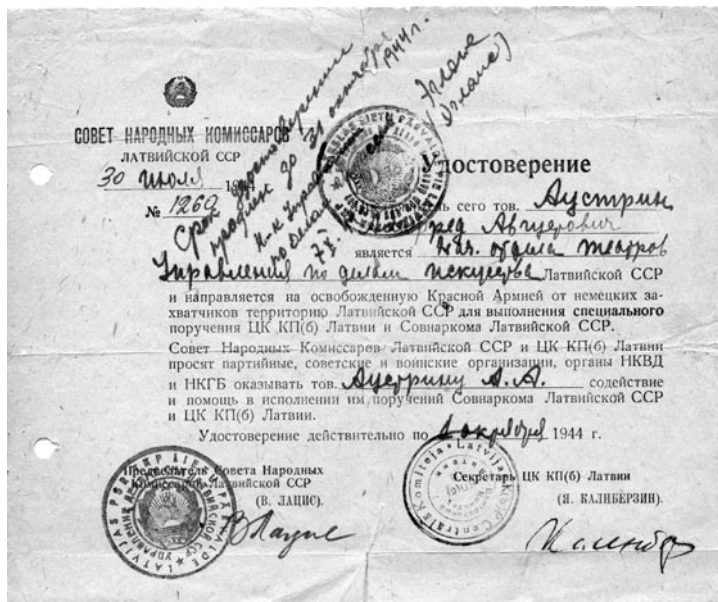 СОВЕТ НАРОДНЫХ КОМИССАРОВ
ЛАТВИЙСКОЙ ССР
30 июля 1944
№ 1269
Срок удостоверения
продлен до 31 октября
1944 г.
Удостоверение
сего тов. Аустрин
Августович
является Нач. отдела театров
Управления по делам искусств Латвийской ССР
и направляется на освобожденную Красной Армией от немецких за-
хватчиков территорию Латвийской ССР для выполнения специального
поручения ЦК КП(б) Латвии и Совнаркома Латвийской ССР.
Совет Народных Комиссаров Латвийской ССР и ЦК КП(б) Латвии
просят партийные, советские и воинские организации, органы НКВД
и НКГБ оказывать тов. Аустрину А.А. содействие
и помощь в исполнении им поручений Совнаркома Латвийской ССР
и ЦК КП(б) Латвии.
Удостоверение действительно по 1 октября 1944 г.
Председатель Совета Народных
Комиссаров Латвийской ССР
(В. ЛАЦИС).
ВЛацис
Секретарь ЦК КП(б) Латвии
(Я. КАЛНБЕРЗИН).